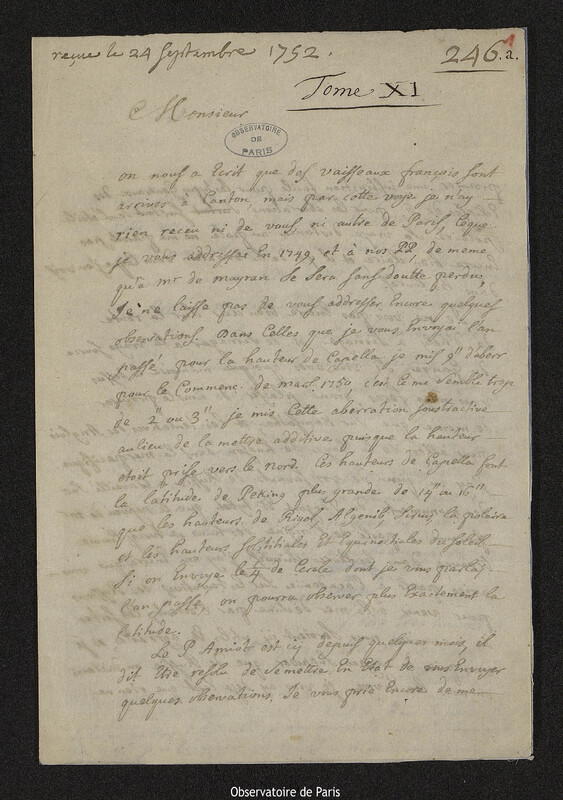 reçue le 24 Septembre 1752.
246.a.
Tome XI
Monsieur
OBSERVATOIRE
DE
PARIS
on nous a Ecrit que des vaisseaux francois sont
arrives à Canton, mais par cette voye je n'ay
rien receu ni de vous ni autre de Paris, Ceque
je vous addressai En 1749, et à nos PP, de meme
qu'a mr de mayran se sera sans doutte perdu,
Je ne laisse pas de vous addresser Encore quelques
observations. Dans Celles que je vous Envoyai l'an
passé pour la hauteur de Capella je mis 9" d'aberr
pour le Commenc. de mars 1750, c'en le me semble trop
de 2" ou 3" je mis Cette aberration soustractive
aulieu de la mettre additive puisque la hauteur
etoit prise vers le Nord. Ces hauteurs de Capella font
la latitude de Peking plus grande de 14" ou 16"
que les hauteurs de Rigel, Algenib, Sirius, la polaire
et les hauteurs solstitiales Et Equinoctiales du soleil.
Si on Envoye le 1/4 de Cercle dont je vous parlai
l'an passé, on pourra observer plus Exactement la
latitude.
Le P Amiot est icy depuis quelques mois, il
dit Etre resolu de se mettre En Etat de vous Envoyer
quelques observations. Je vous prie Encore de me
Observatoire de Paris